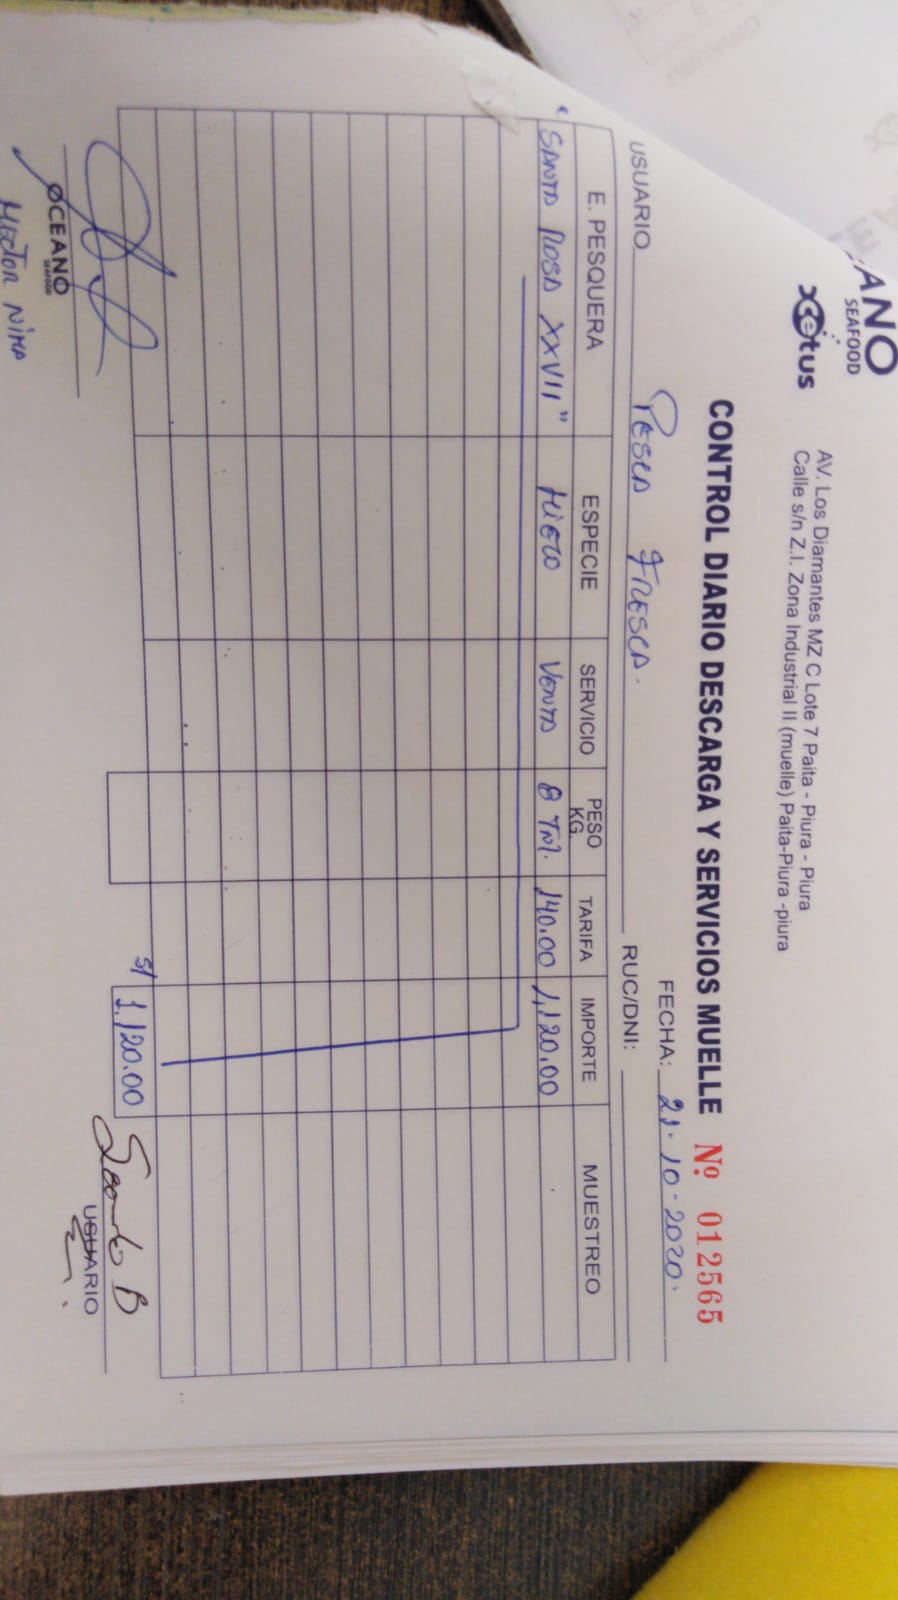 ANO
SEAFOOD
xcetus
AV. Los Diamantes MZ C Lote 7 Paita - Piura - Piura
Calle s/n Z.I. Zona Industrial II (muelle) Paita-Piura -piura
CONTROL DIARIO DESCARGA Y SERVICIOS MUELLE Nº 012565
FECHA: 21.10.2020.
USUARIO PESCA FRESCA. RUC/DNI:
E. PESQUERA ESPECIE SERVICIO PESO KG. TARIFA IMPORTE MUESTREO
"SANTA ROSA XXVII" Hielo VENTA 8 TM. 140.00 1,120.00
S/ 1.120.00
OCEANO
SEAFOOD
USUARIO
Hector Nima